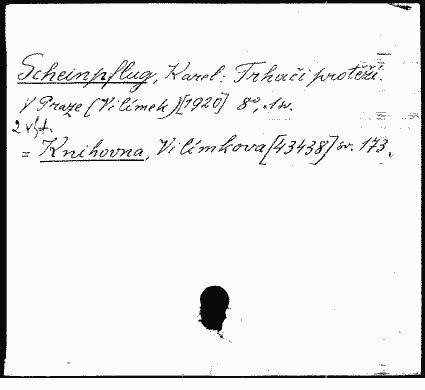 Scheinpflug, Karel: Trhači protěží.
V Praze (Vilímek) [1920] 8°, 1 sv.
2 výt.
= Knihovna, Vilímkova [43438] sv. 173.